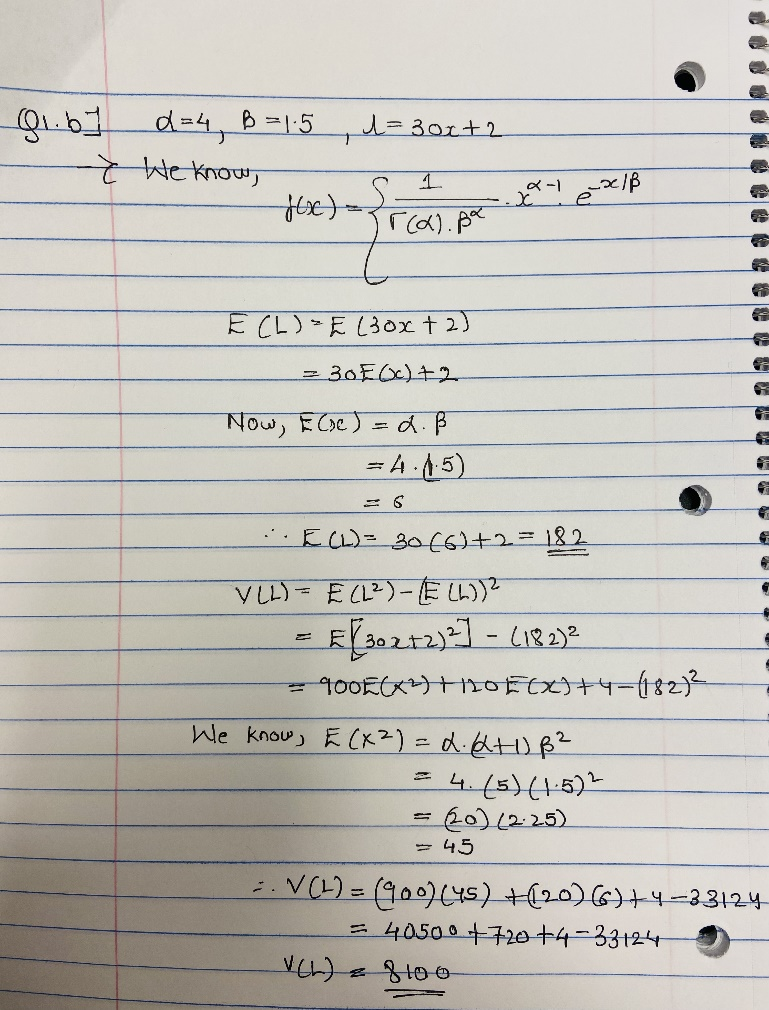 Q1.b] α=4, β=1.5, L=30x+2
→ We know,
f(x) = { 1/(Γ(α).β^α) . x^(α-1) . e^(-x/β)
E(L) = E(30x+2)
= 30E(x)+2
Now, E(x) = α.β
= 4.(1.5)
= 6
∴ E(L) = 30(6)+2 = 182
V(L) = E(L²)-(E(L))²
= E[30x+2)²] - (182)²
= 900E(x²)+120E(x)+4-(182)²
We know, E(x²) = α.(α+1) β²
= 4.(5)(1.5)²
= (20)(2.25)
= 45
∴ V(L) = (900)(45) + (120)(6)+4-33124
= 40500+720+4-33124
V(L) = 8100